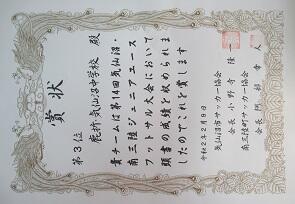 賞状
第3位
鹿折気仙沼中学校 殿
貴チームは第14回気仙沼・
南三陸ジュニアユース
フットサル大会において
頭書の成績を収められま
したのでこれを賞します
令和2年2月9日
気仙沼市サッカー協会
会長 小野寺 隆一
南三陸町サッカー協会
会長 阿部